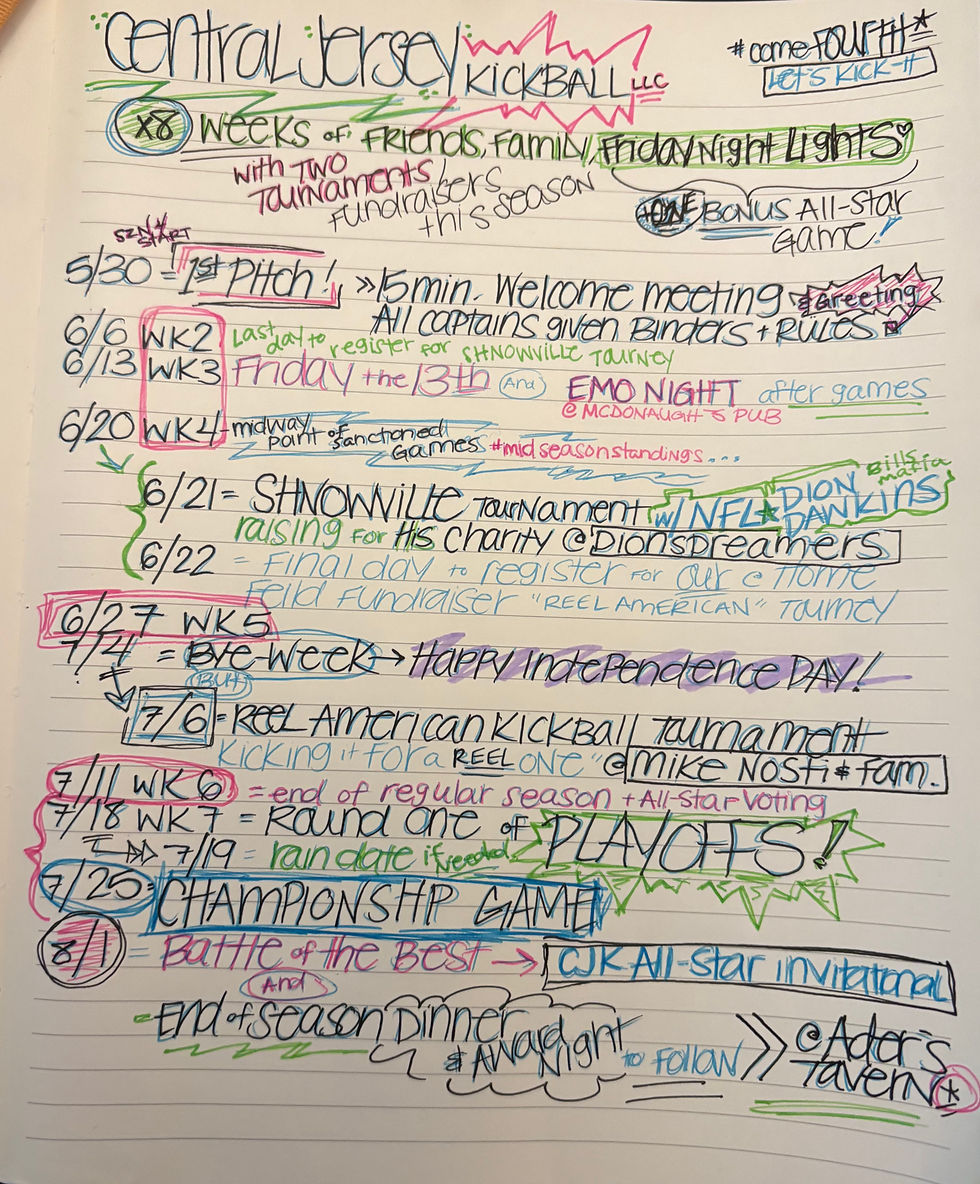 CENTRAL JERSEY KICKBALL LLC
#comeFOURtit*
LET'S KICK-It
x8 WEEKS of: FRIENDS, Family, Friday Night Lights
with TWO Tournaments/fundraisers this season
+ONE BONUS All-Star Game!
SZN START
5/30 = 1st Pitch! >> 15 min. Welcome meeting & Greeting
All captains given Binders + RULES
6/6 WK2 Last day to register for SHNOWVILLE TOURNEY
6/13 WK3 Friday the 13th And EMO NIGHT after games
@ MCDONAUGHT'S PUB
6/20 WK4 - midway point of sanctioned Games #midseasonstandings...
6/21 = SHNOWVILLE Tournament w/ NFL★ DION DAWKINS Bills mafia
raising for His charity @DionsDreamers
6/22 = Final day to register for our @ Home
Feild Fundraiser "REEL AMERICAN" Tourney
6/27 WK5
7/4 = Bye Week → Happy Independence DAY!
(BUT)
7/6 = REEL American Kickball Tournament
Kicking it for a REEL ONE" @ MIKE NOSTi & FAM.
7/11 WK 6 = end of regular season + All-Star Voting
7/18 WK 7 = Round One of PLAYOFFS!
7/19 = rain date if needed
7/25 = CHAMPIONSHIP GAME
8/1 = Battle of the Best → CJK All-Star invitational
(And)
- End of Season Dinner & Award Night to Follow >> @Ader's Tavern*